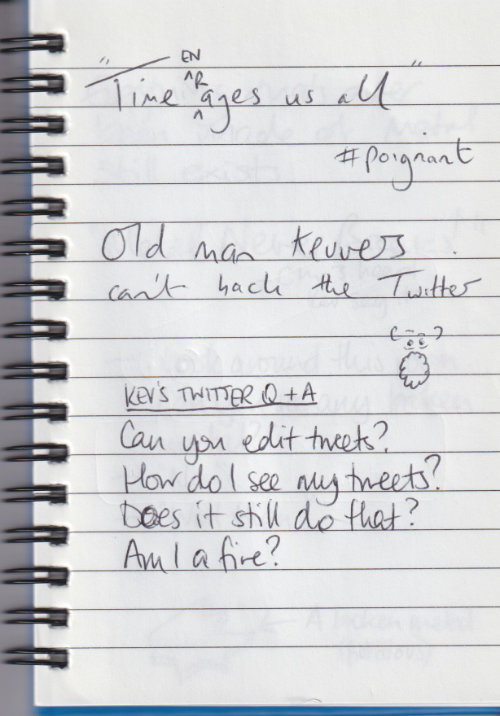 "Time ages us all"
EN
R
#poignant
Old man Keuvers
can't hack the Twitter
KEV'S TWITTER Q + A
Can you edit tweets?
How do I see my tweets?
Does it still do that?
Am I a fire?